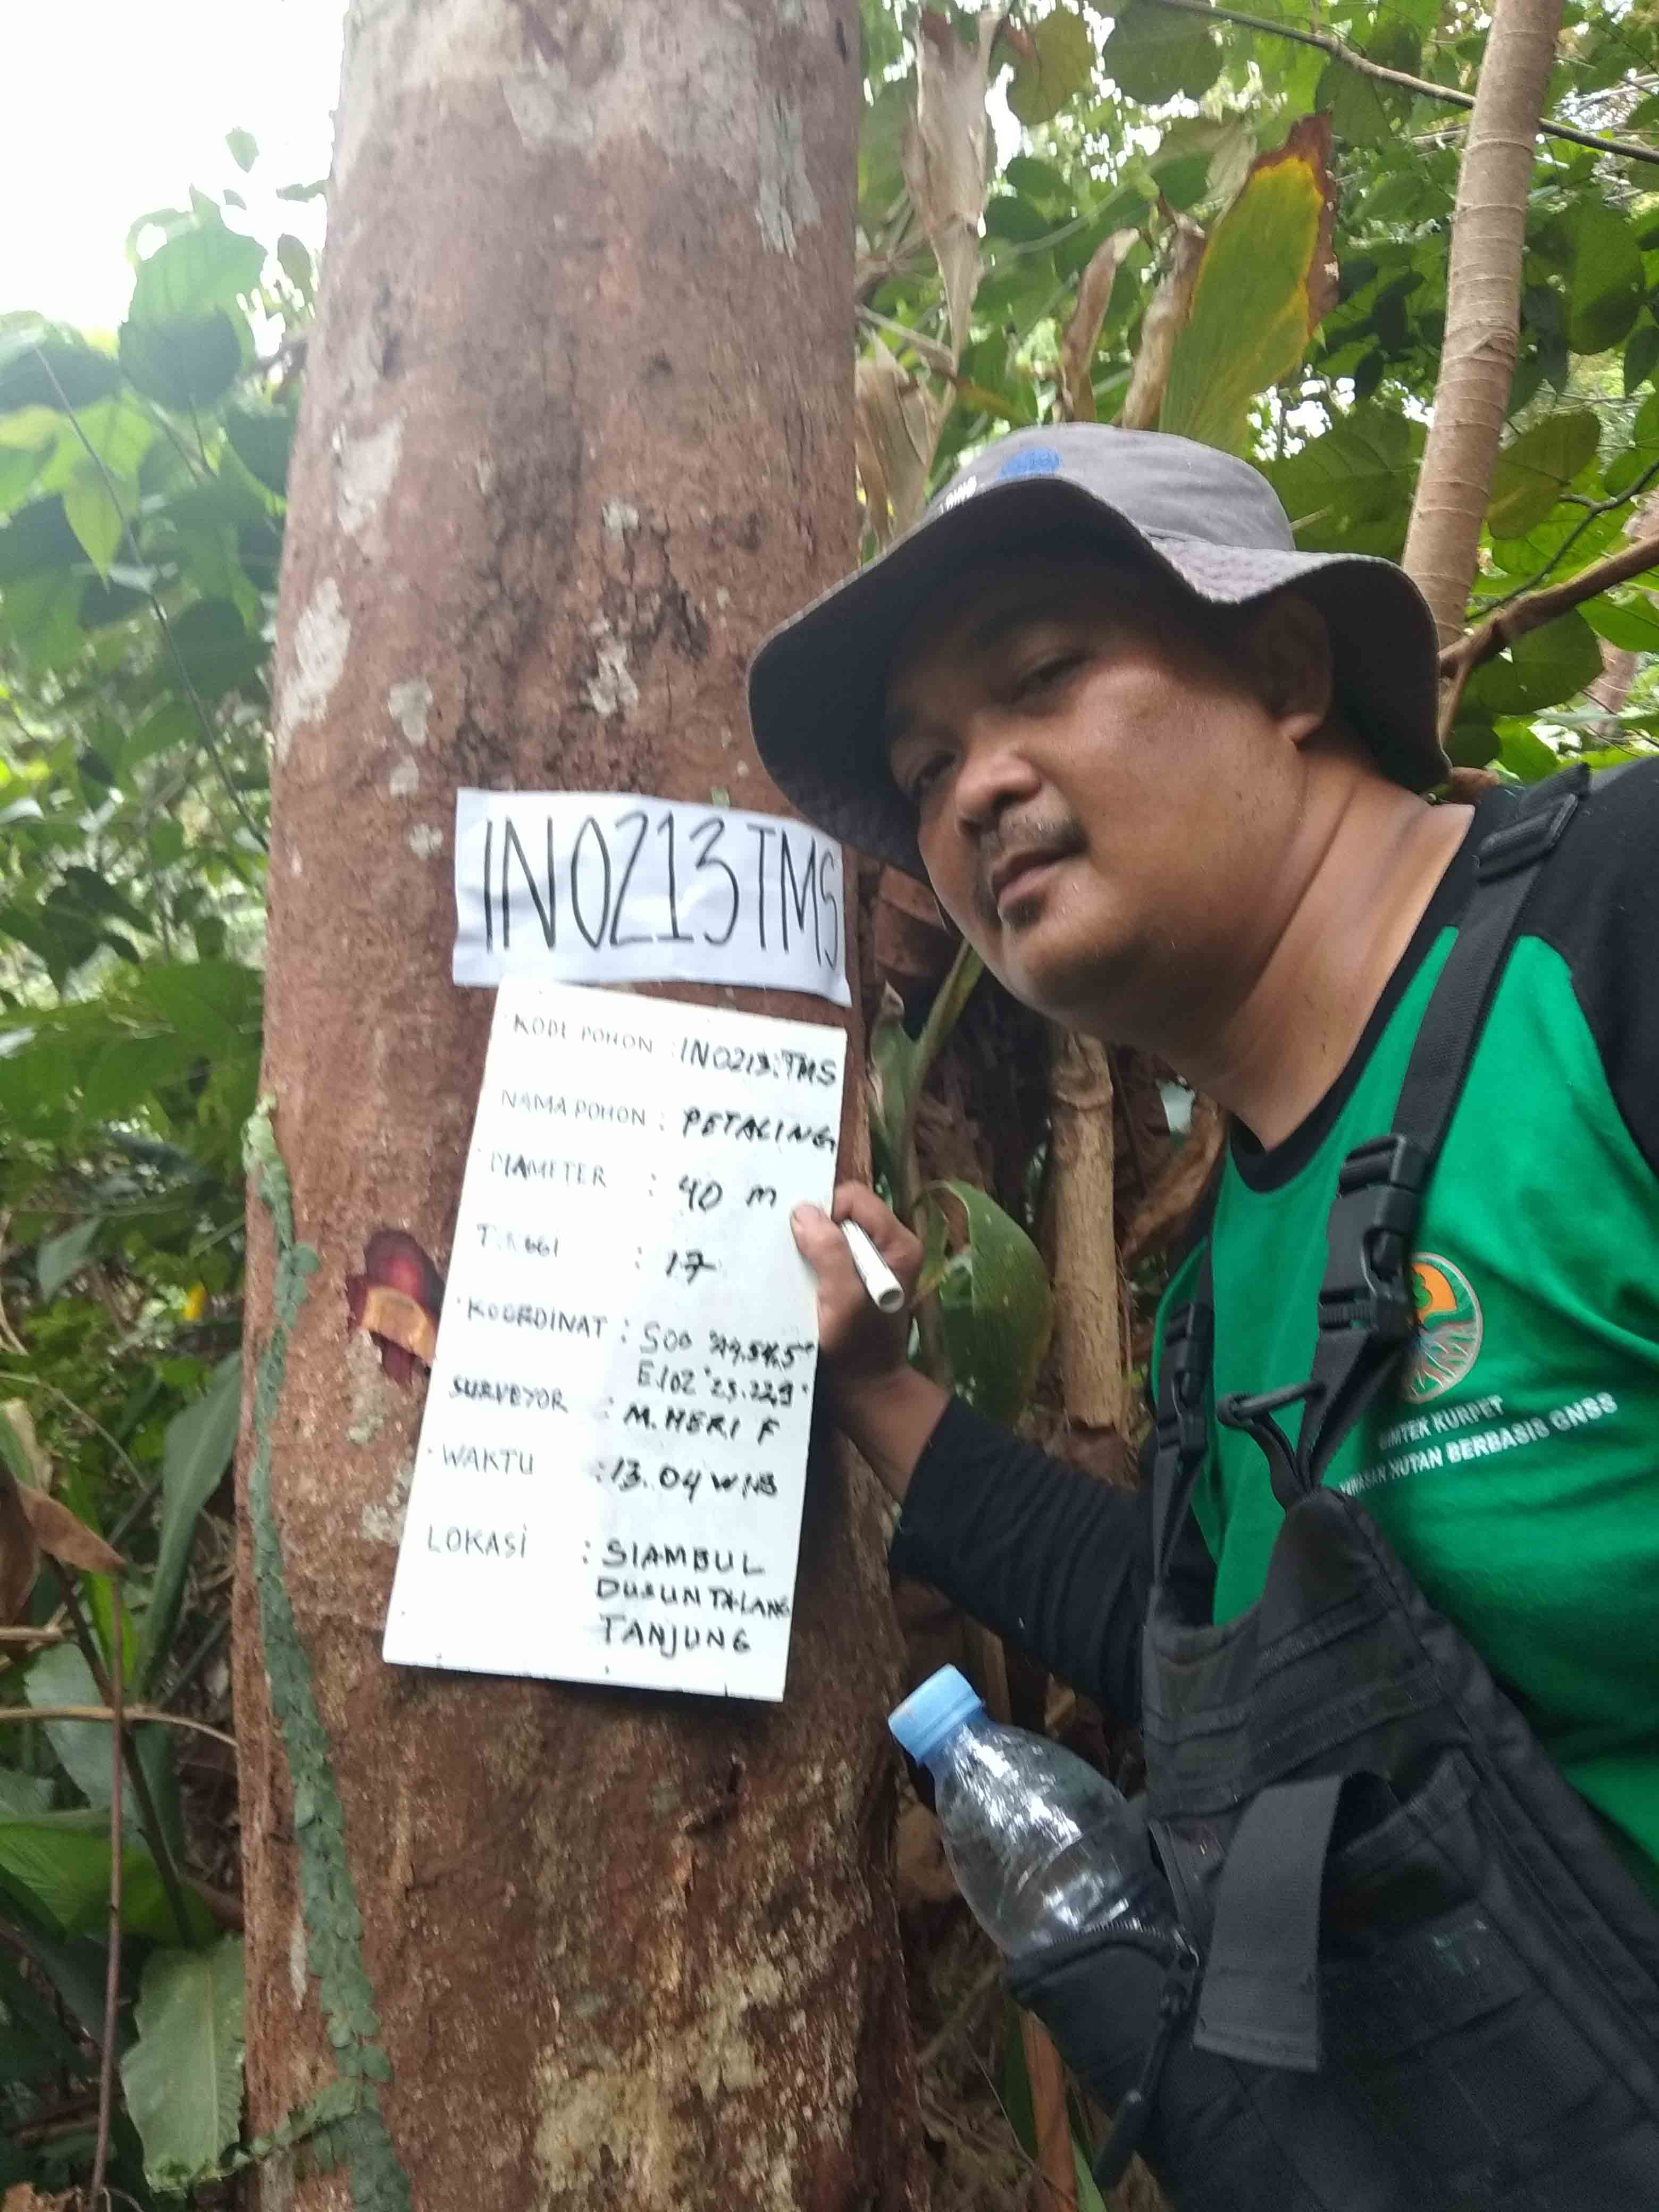 IN0213TMS
KODE POHON : IN0213.TMS
NAMA POHON : PETALING
DIAMETER : 40 m
TINGGI : 17
KOORDINAT : S00
E102°23.229"
SURVEYOR : M. HERI F
WAKTU : 13.04 WIB
LOKASI : SIAMBUL
DUSUN TALANG
TANJUNG
BIMTEK KURPET
HUTAN BERBASIS GNSS